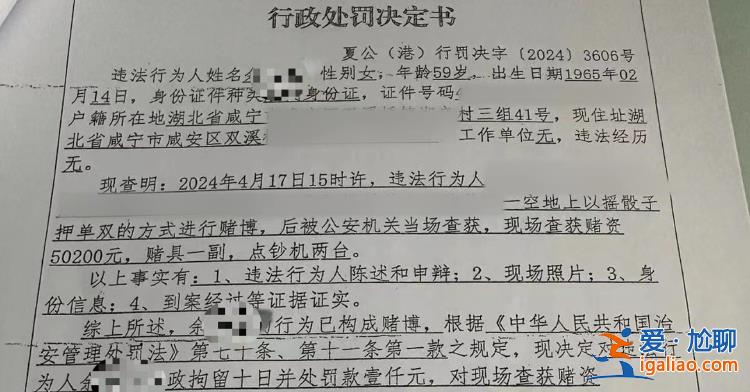 行政处罚决定书
夏公（港）行罚决字〔2024〕3606号
违法行为人姓名余 性别女，年龄59岁，出生日期1965年02
月14日，身份证件种类 身份证，证件号码
户籍所在地湖北省咸宁 村三组41号，现住址湖
北省咸宁市咸安区双溪 工作单位无，违法经历
无。
现查明：2024年4月17日15时许，违法行为人
一空地上以摇骰子
押单双的方式进行赌博，后被公安机关当场查获，现场查获赌资
50200元，赌具一副，点钞机两台。
以上事实有：1、违法行为人陈述和申辩；2、现场照片；3、身
份信息；4、到案经过等证据证实。
综上所述，余 行为已构成赌博，根据《中华人民共和国治
安管理处罚法》第七十条、第十一条第一款之规定，现决定对违法行
为人余 政拘留十日并处罚款壹仟元，对现场查获赌资
爱·尬聊
igaliao.com